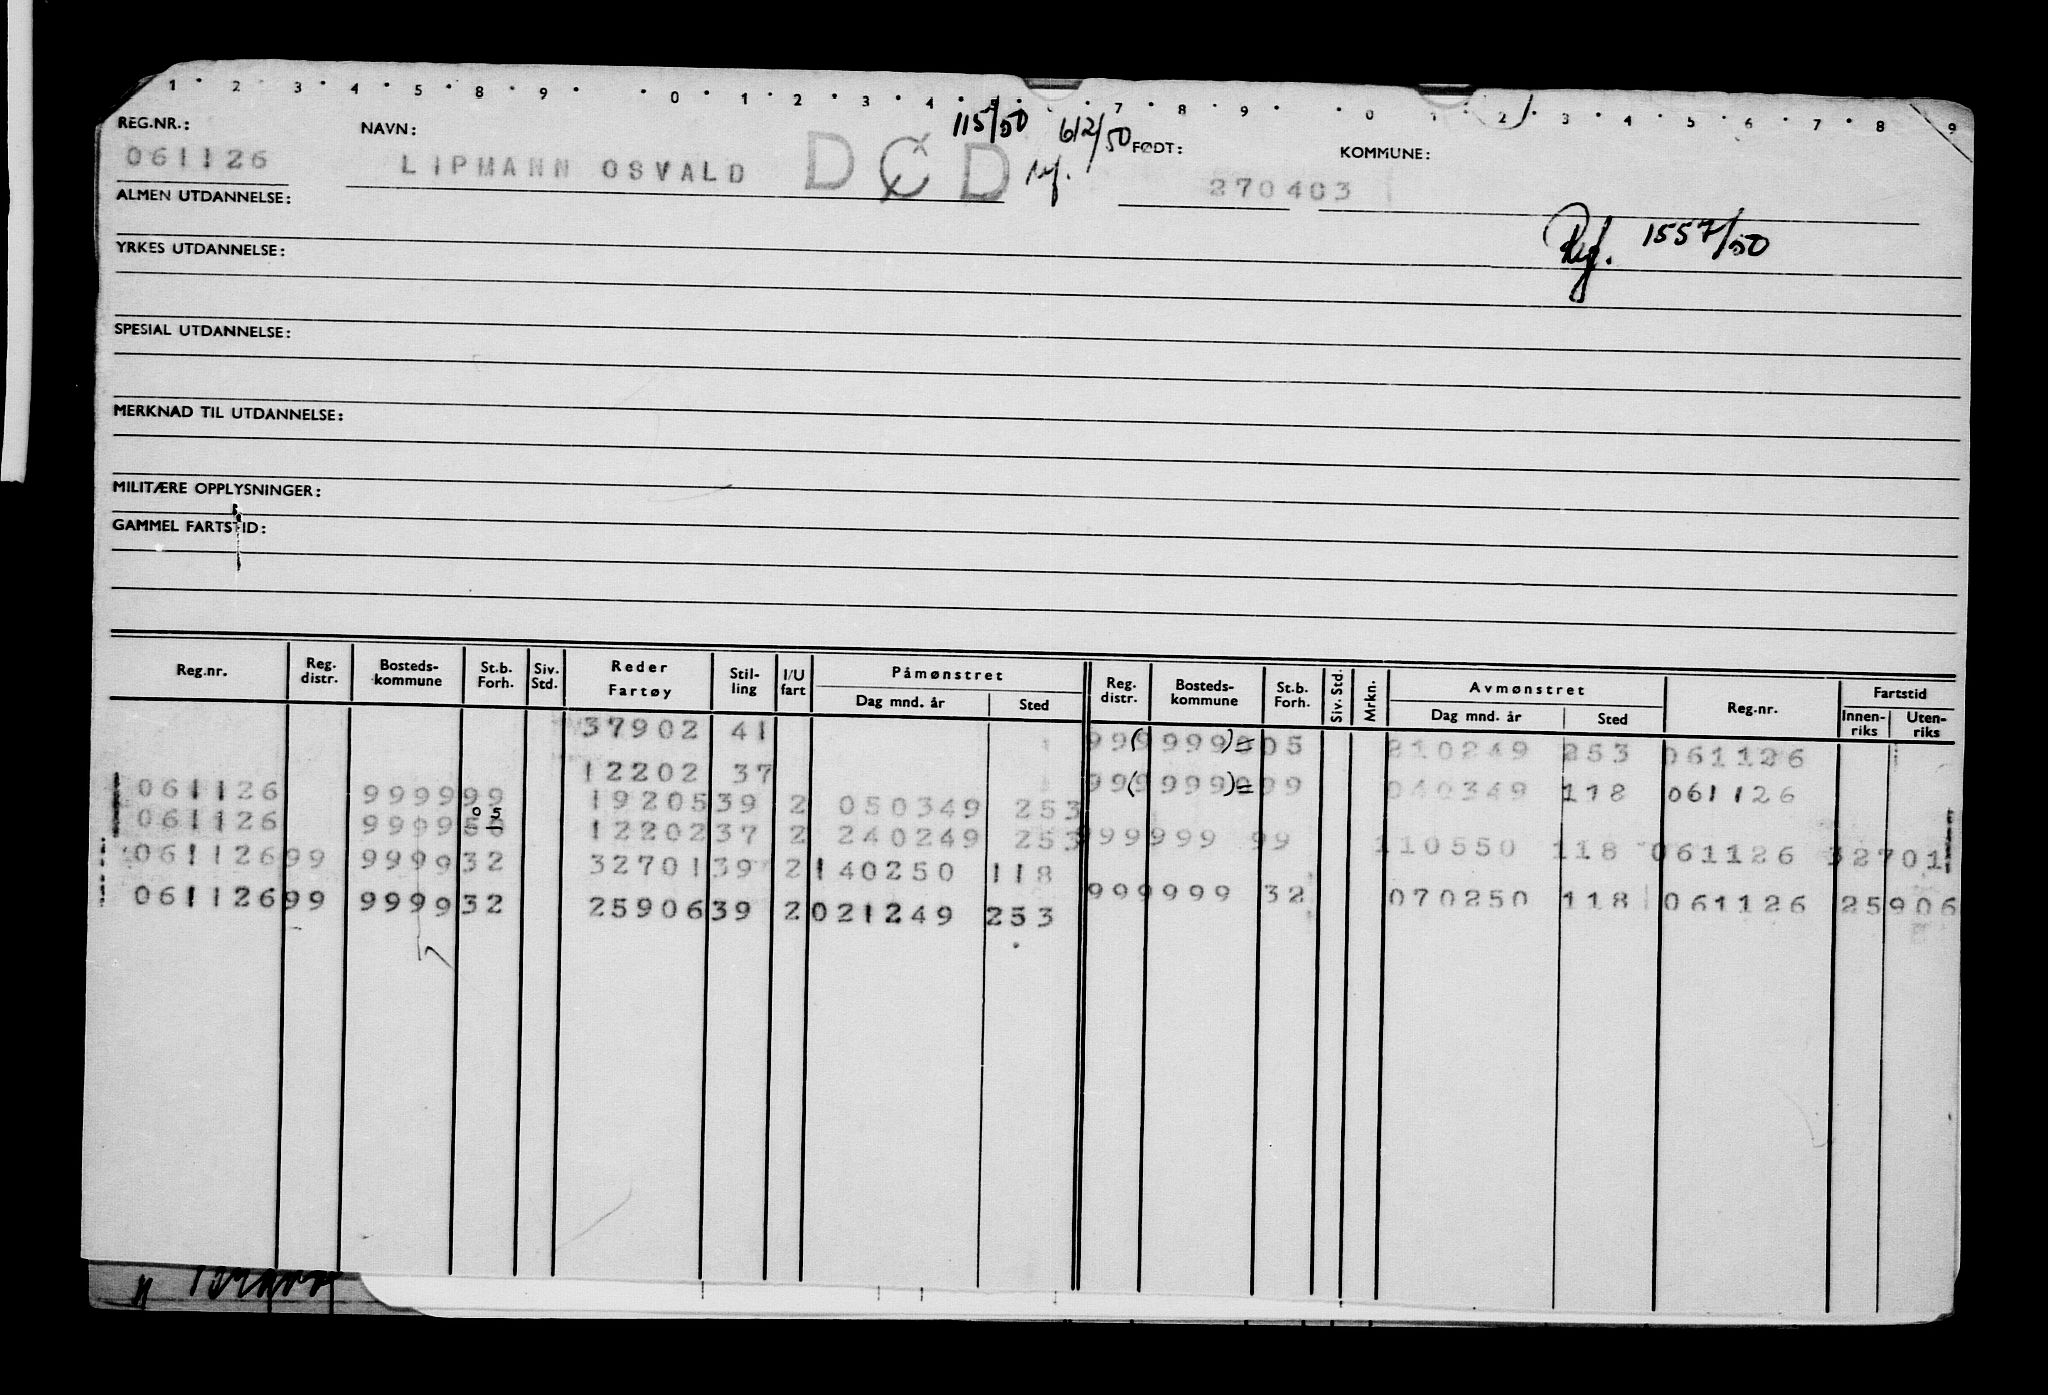 1 2 3 4 5 8 9 0 1 2 3 4 5 7 8 9 0 1 2 3 4 5 6 7 8 9
115/50 612/50
REG.NR.: NAVN: FØDT: KOMMUNE:
061126 LIPMANN OSVALD D Ø D 270403
ALMEN UTDANNELSE:
Ref. 1557/50
YRKES UTDANNELSE:
SPESIAL UTDANNELSE:
MERKNAD TIL UTDANNELSE:
MILITÆRE OPPLYSNINGER:
GAMMEL FARTSTID:
Reg.nr. Reg. distr. Bosteds-kommune St.b. Forh. Siv. Std. Reder Fartøy Stil-ling I/U fart Påmønstret Dag mnd. år Sted Reg. distr. Bosteds-kommune St.b. Forh. Siv. Std. Mrkn. Avmønstret Dag mnd. år Sted Reg.nr. Fartstid Innen-riks Uten-riks
37902 41 99(9999)=05 210249 253 061126
12202 37 99(9999)=99 040349 118 061126
061126 999999 19205 39 2 050349 253
061126 9999 05 12202 37 2 240249 253 999999 99 110550 118 061126 32701
061126 99 9999 32 32701 39 2 140250 118
061126 99 9999 32 25906 39 2 021249 253 999999 32 070250 118 061126 25906